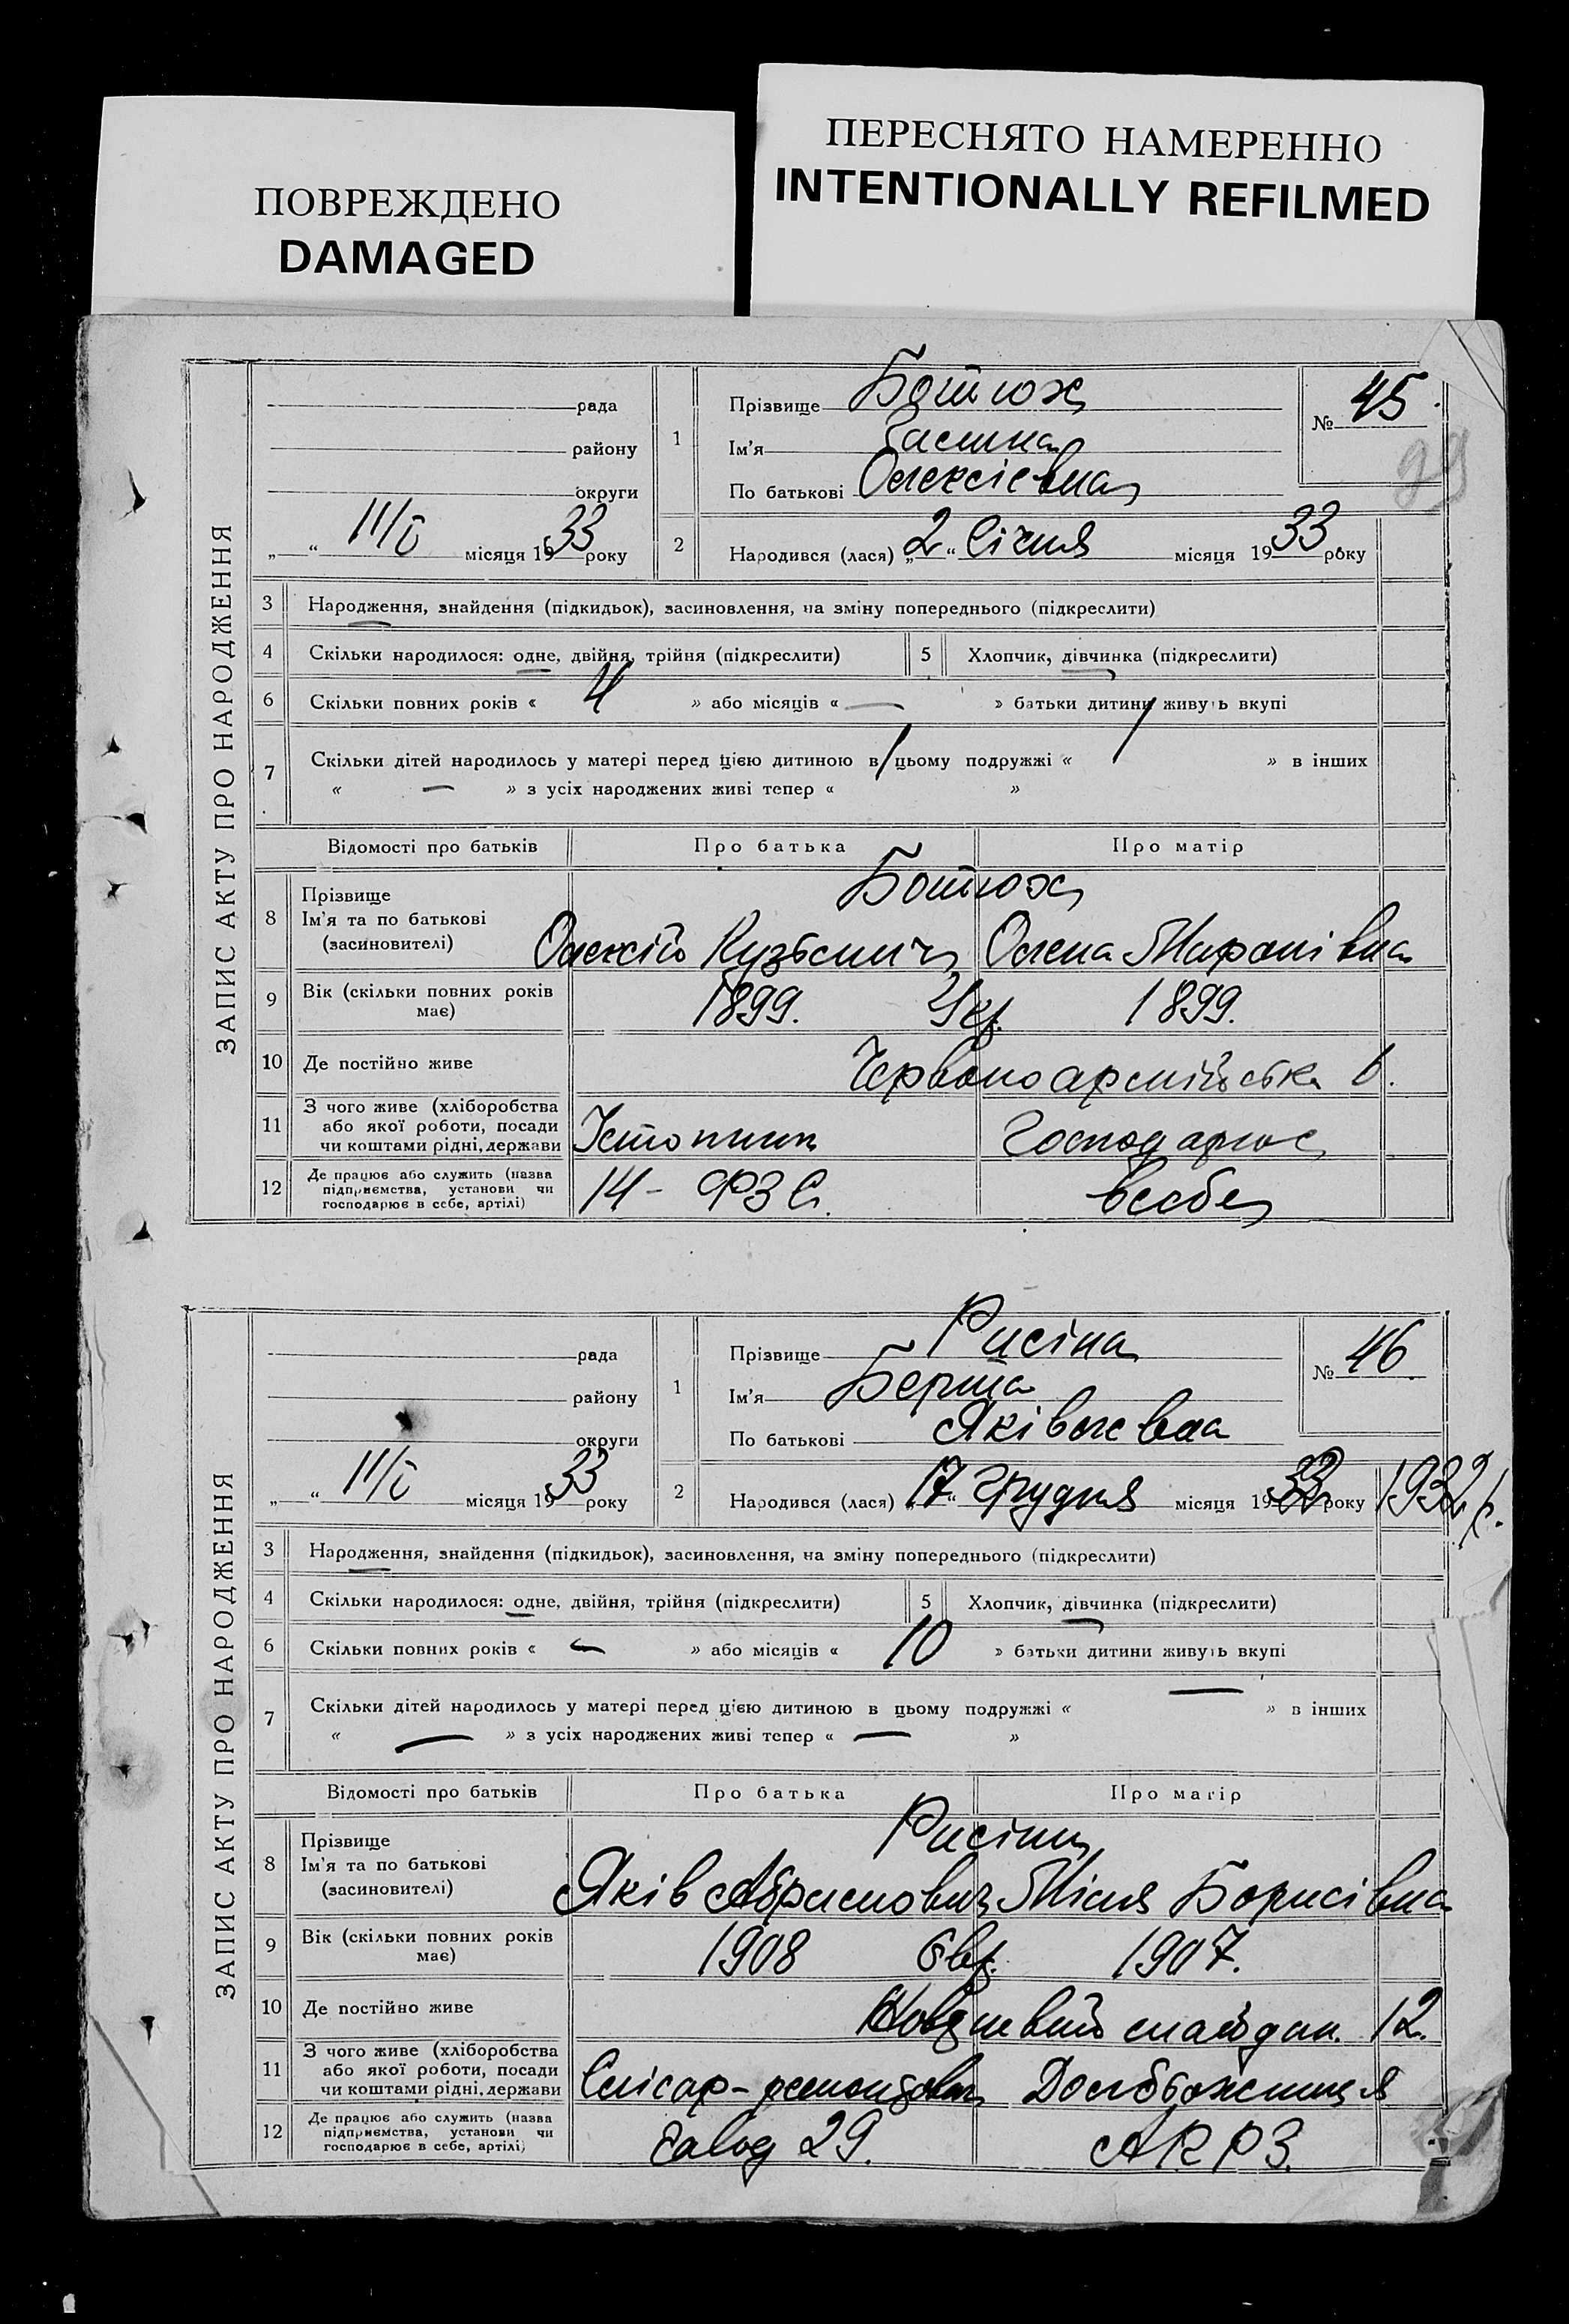 ПОВРЕЖДЕНО
DAMAGED
ПЕРЕСНЯТО НАМЕРЕННО
INTENTIONALLY REFILMED
ЗАПИС АКТУ ПРО НАРОДЖЕННЯ
рада
району
округи
„ “ 11/I місяця 1933 року
1
Прізвище
Ім'я
По батькові Олексієвна
№ 45.
99
2 Народився (лася) „2“ Січня місяця 1933 року
3 Народження, знайдення (підкидьок), засиновлення, на зміну попереднього (підкреслити)
4 Скільки народилося: одне, двійня, трійня (підкреслити) 5 Хлопчик, дівчинка (підкреслити)
6 Скільки повних років « 4 » або місяців « — » батьки дитини живуть вкупі
7 Скільки дітей народилось у матері перед цією дитиною в цьому подружжі « 1 » в інших
« — » з усіх народжених живі тепер « 1 »
Відомості про батьків Про батька Про матір
8 Прізвище
Ім'я та по батькові
(засиновителі)
Олексій Кузьмич Олена
9 Вік (скільки повних років має) 1899. Укр. 1899.
10 Де постійно живе Червоноармійська 6.
11 З чого живе (хліборобства або якої роботи, посади чи коштами рідні, держави Істопник Господарює
12 Де працює або служить (назва підприємства, установи чи господарює в себе, артілі) 14 - ФЗС. всебе
ЗАПИС АКТУ ПРО НАРОДЖЕННЯ
рада
району
округи
„ “ 11/I місяця 1933 року
1
Прізвище Рисіна
Ім'я Берта
По батькові Яківлевна
№ 46.
2 Народився (лася) „17“ Грудня місяця 1933 року 1932 р.
3 Народження, знайдення (підкидьок), засиновлення, на зміну попереднього (підкреслити)
4 Скільки народилося: одне, двійня, трійня (підкреслити) 5 Хлопчик, дівчинка (підкреслити)
6 Скільки повних років « — » або місяців « 10 » батьки дитини живуть вкупі
7 Скільки дітей народилось у матері перед цією дитиною в цьому подружжі « — » в інших
« — » з усіх народжених живі тепер « — »
Відомості про батьків Про батька Про матір
8 Прізвище Рисіни
Ім'я та по батькові
(засиновителі)
Яків Абрамович Борисівна
9 Вік (скільки повних років має) 1908 Євр. 1907.
10 Де постійно живе майдан. 12.
11 З чого живе (хліборобства або якої роботи, посади чи коштами рідні, держави Слісар-
12 Де працює або служить (назва підприємства, установи чи господарює в себе, артілі) Завод 29.